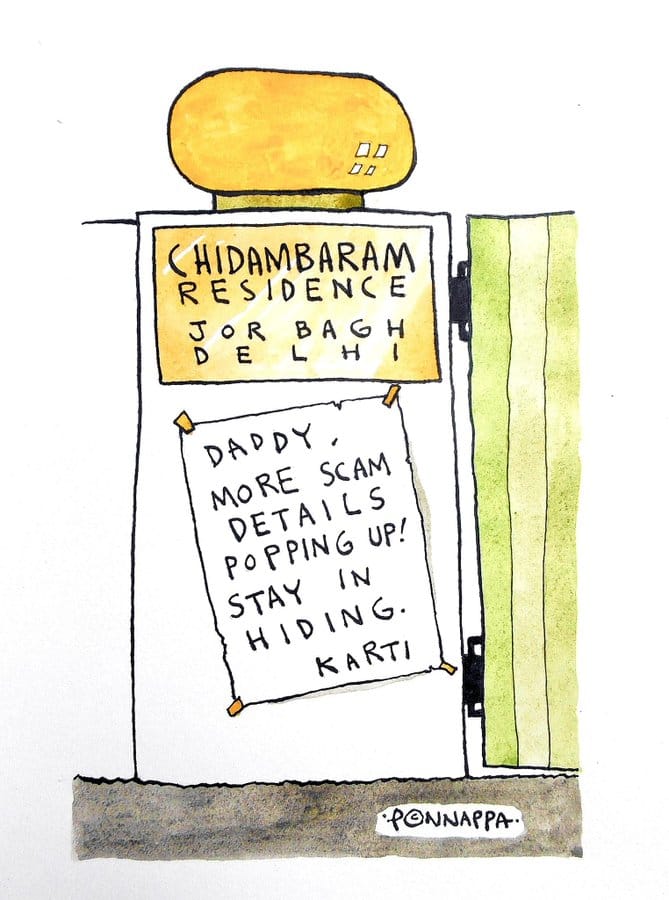 CHIDAMBARAM
RESIDENCE
JOR BAGH
DELHI
DADDY,
MORE SCAM
DETAILS
POPPING UP!
STAY IN
HIDING.
KARTI
·P©NNAPPA·